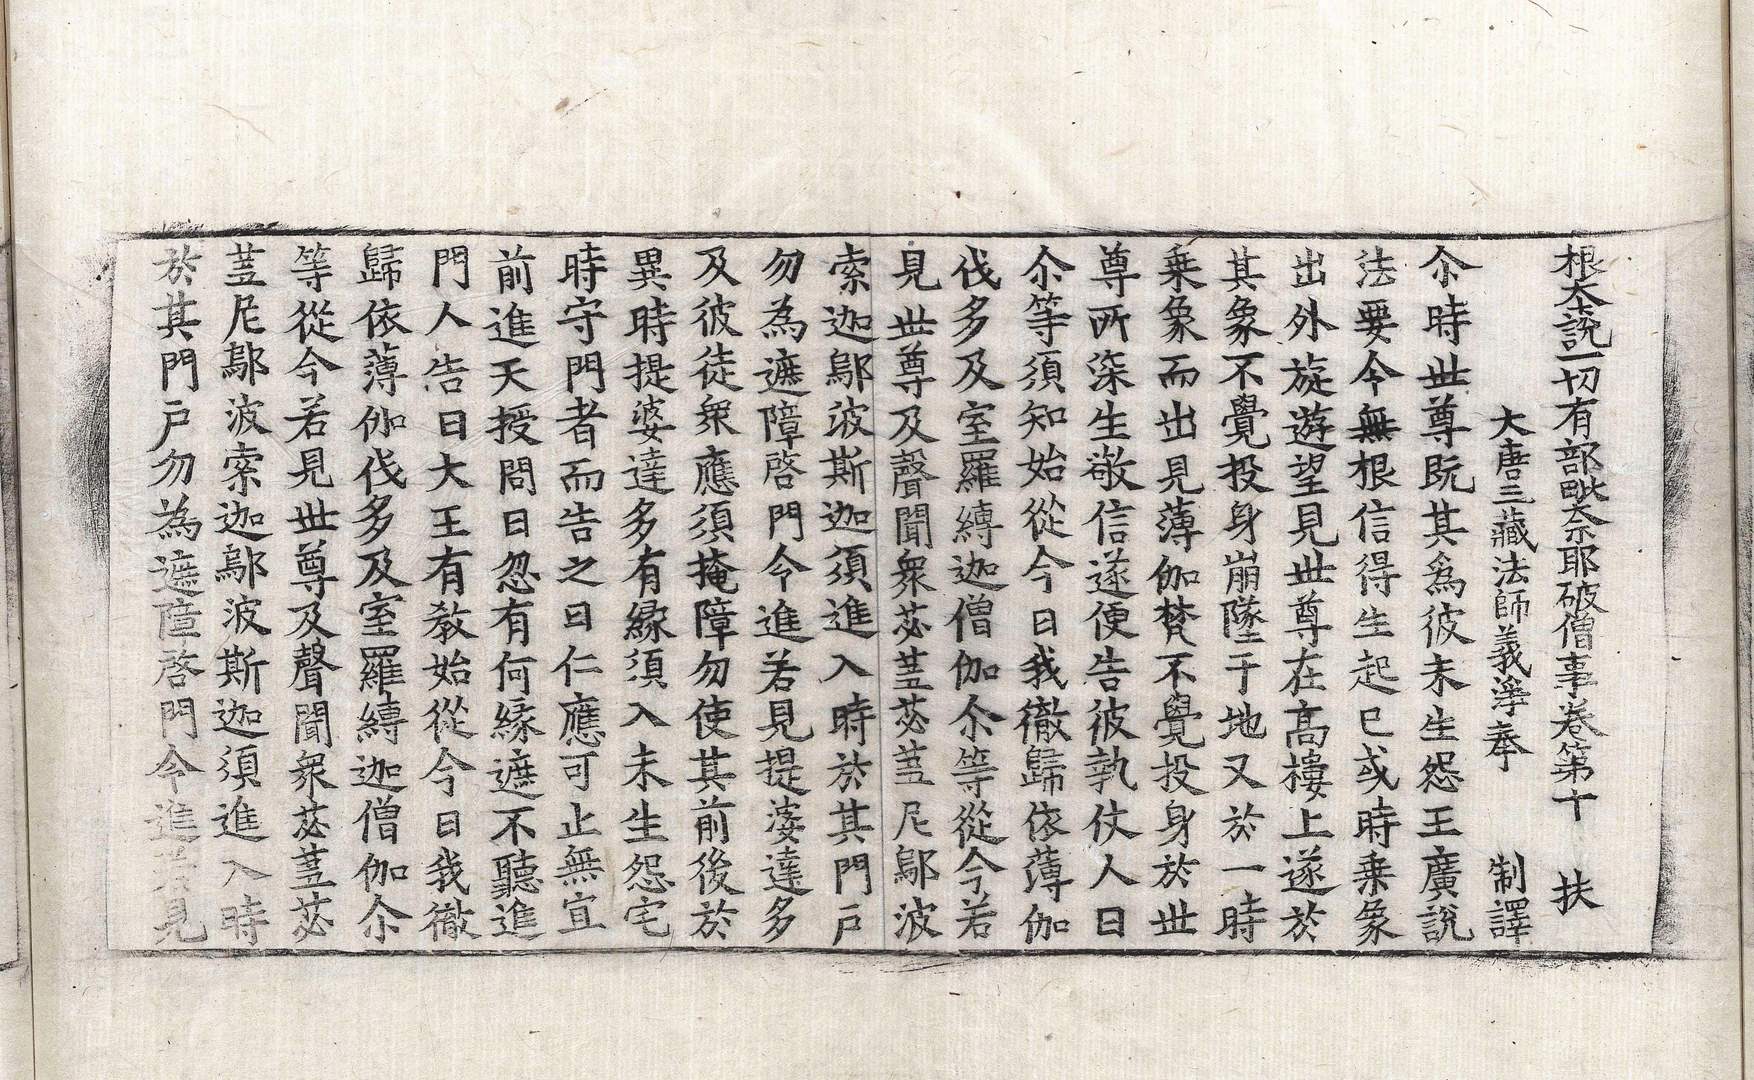 根夲說一切有部毗奈耶破僧事卷第十　扶
大唐三藏法師義淨奉　制譯
尒時世尊既其為彼未生怨王廣說
法要令無根信得生起已或時乗象
出外旋遊望見世尊在高樓上遂於
其象不覺投身崩墜于地又於一時
乗象而出見薄伽梵不覺投身於世
尊所深生敬信遂便告彼執仗人曰
尒等須知始從今日我徹歸依薄伽
伐多及室羅縛迦僧伽尒等從今若
見世尊及聲聞衆苾蒭苾蒭尼鄔波
索迦鄔波斯迦須進入時於其門戶
勿為遮障啓門令進若見提婆達多
及彼徒衆應須掩障勿使其前後於
異時提婆達多有緣須入未生怨宅
時守門者而告之曰仁應可止無宜
前進天授問曰忽有何緣遮不聽進
門人告曰大王有教始從今日我徹
歸依薄伽伐多及室羅縛迦僧伽尒
等從今若見世尊及聲聞衆苾蒭苾
蒭尼鄔波索迦鄔波斯迦須進入時
於其門戶勿為遮障啓門令進若見